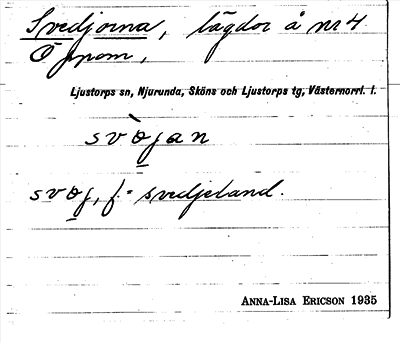 Svedjorna, lägdor å nr 4
Öppom,
Ljustorps sn, Njurunda, Sköns och Ljustorps tg, Västernorrl. l.
svö̀jan
svöj, f. = svedjeland.
ANNA-LISA ERICSON 1935